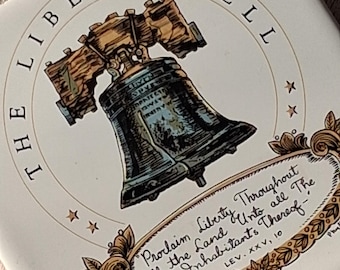 THE LIBERTY BELL
Proclaim Liberty Throughout
all the Land Unto all The
Inhabitants Thereof.
LEV. XXV, 10